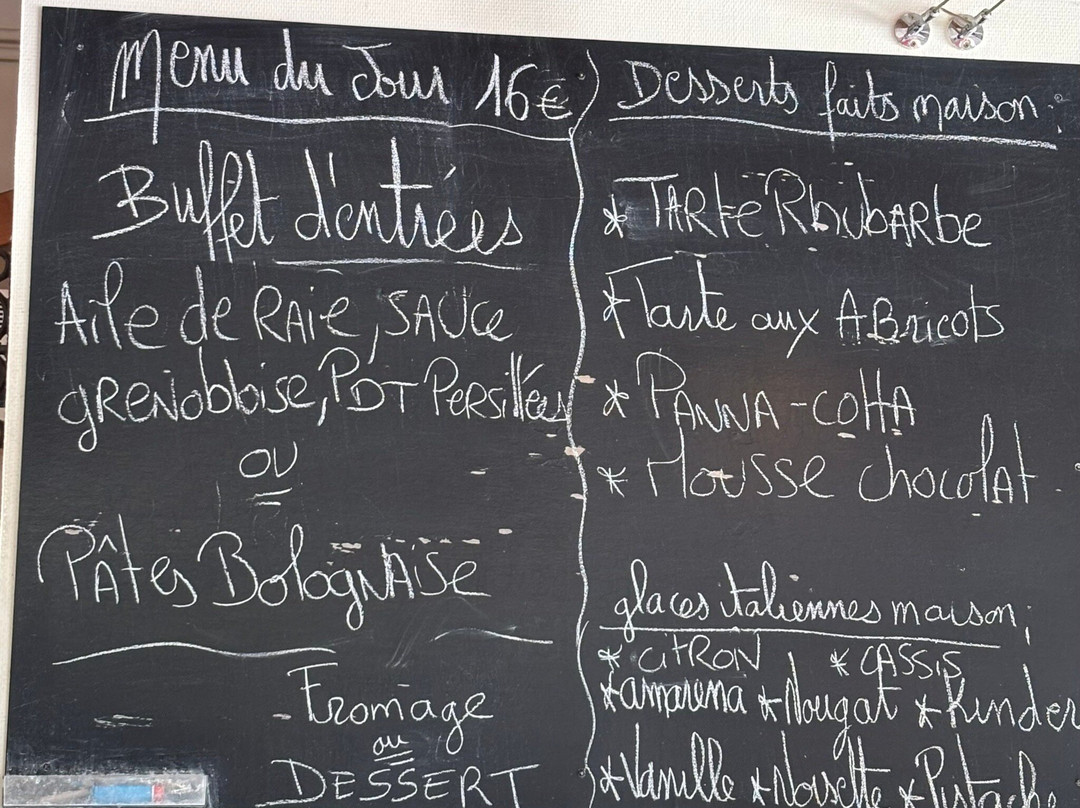 Menu du Jour 16€
Buffet d'entrées
Aile de Raie, sauce
grenobloise, PDT Persillées
ou
Pâtes Bolognaise
Fromage
ou
DESSERT
Desserts faits maison:
* Tarte Rhubarbe
* Tarte aux Abricots
* Panna-cotta
* Mousse chocolat
glaces italiennes maison;
* Citron * Cassis
* amarena * Nougat * Kinder
* Vanille * Noisette * Pistache